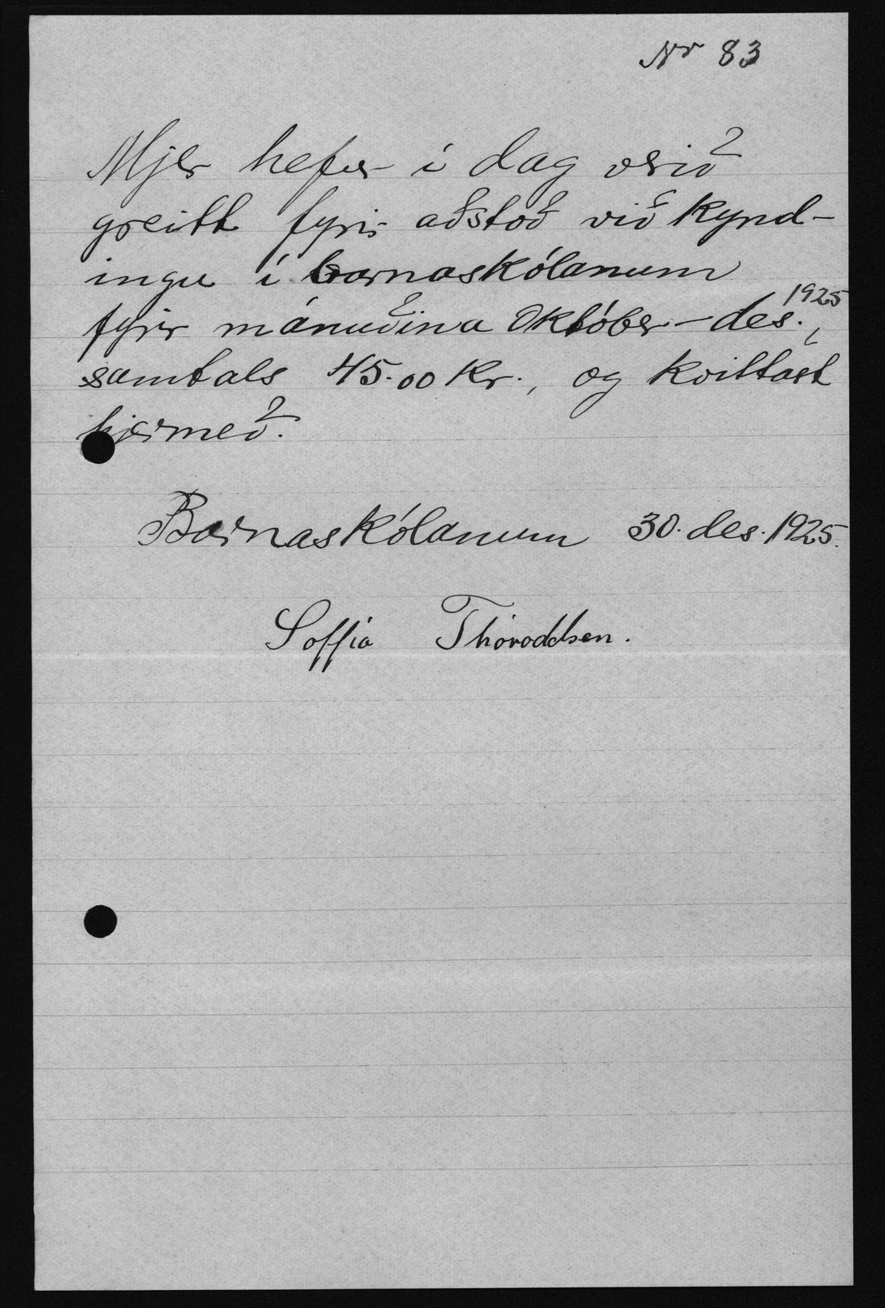 Nr 83
Mjer hefir í dag verið
greitt fyrir aðstoð við kynd-
ingu í barnaskólanum
fyrir mánuðina Október - des. 1925,
samtals 45.00 kr., og kvittast
hjermeð.
Barnaskólanum 30. des. 1925.
Soffía Thóroddsen.